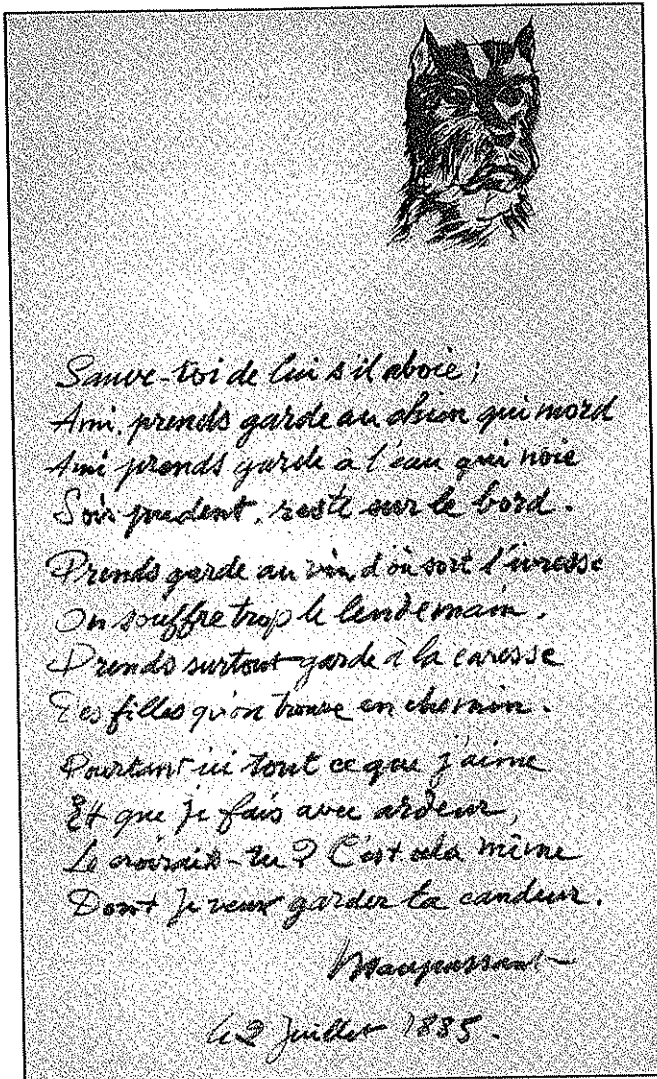 Sauve-toi de lui s'il aboie ;
Ami, prends garde au chien qui mord
Ami prends garde a l'eau qui noie
Sois prudent, reste sur le bord.
Prends garde au vin, d'où sort l'ivresse
On souffre trop le lendemain.
Prends surtout garde à la caresse
Des filles qu'on trouve en chemin.
Pourtant ici tout ce que j'aime
Et que je fais avec ardeur,
Le croirais-tu ? C'est cela même
Dont je veux garder ta candeur.
Maupassant
le 2 Juillet 1885.